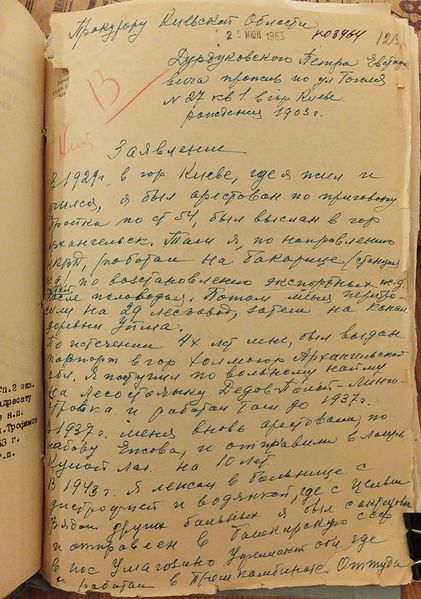 Прокурору Киевской Области
25 ИЮН 1963
123
Дурдуковского Петра
вича прожив по ул Гоголя
№ 27 кв 1. в гор Киеве
рождения 1903 г.
13
Заявление
В 1929г в гор Киеве, где я жил и
учился, я был арестован по приговору
тройка по ст 54, был выслан в гор
Архангельск. Там я, по направлению
работал на бакарице (станция
по восстановлению экспортных
после половодья. Потом меня перебро-
сили на 29 лесозавод, затем на
деревни Уйма.
По истечении 4х лет мне, был выдан
паспорт в гор Холмогор Архангельской
обл. Я поступил по вольному найму
на
и работал там до 1937г.
В 1937г. меня вновь арестовали, по
набору Ежова, и отправили в лагерь
лаг. на 10 лет.
В 1943г. Я лежал в больнице с
дистрофией и водянкой, где с целым
рядом других больных я был
и отправлен в Башкирскую ССР
в пос где
и работал в Оттуда
тп. 2 экз.
адресату
в н.п.
Трофимов
63 г.